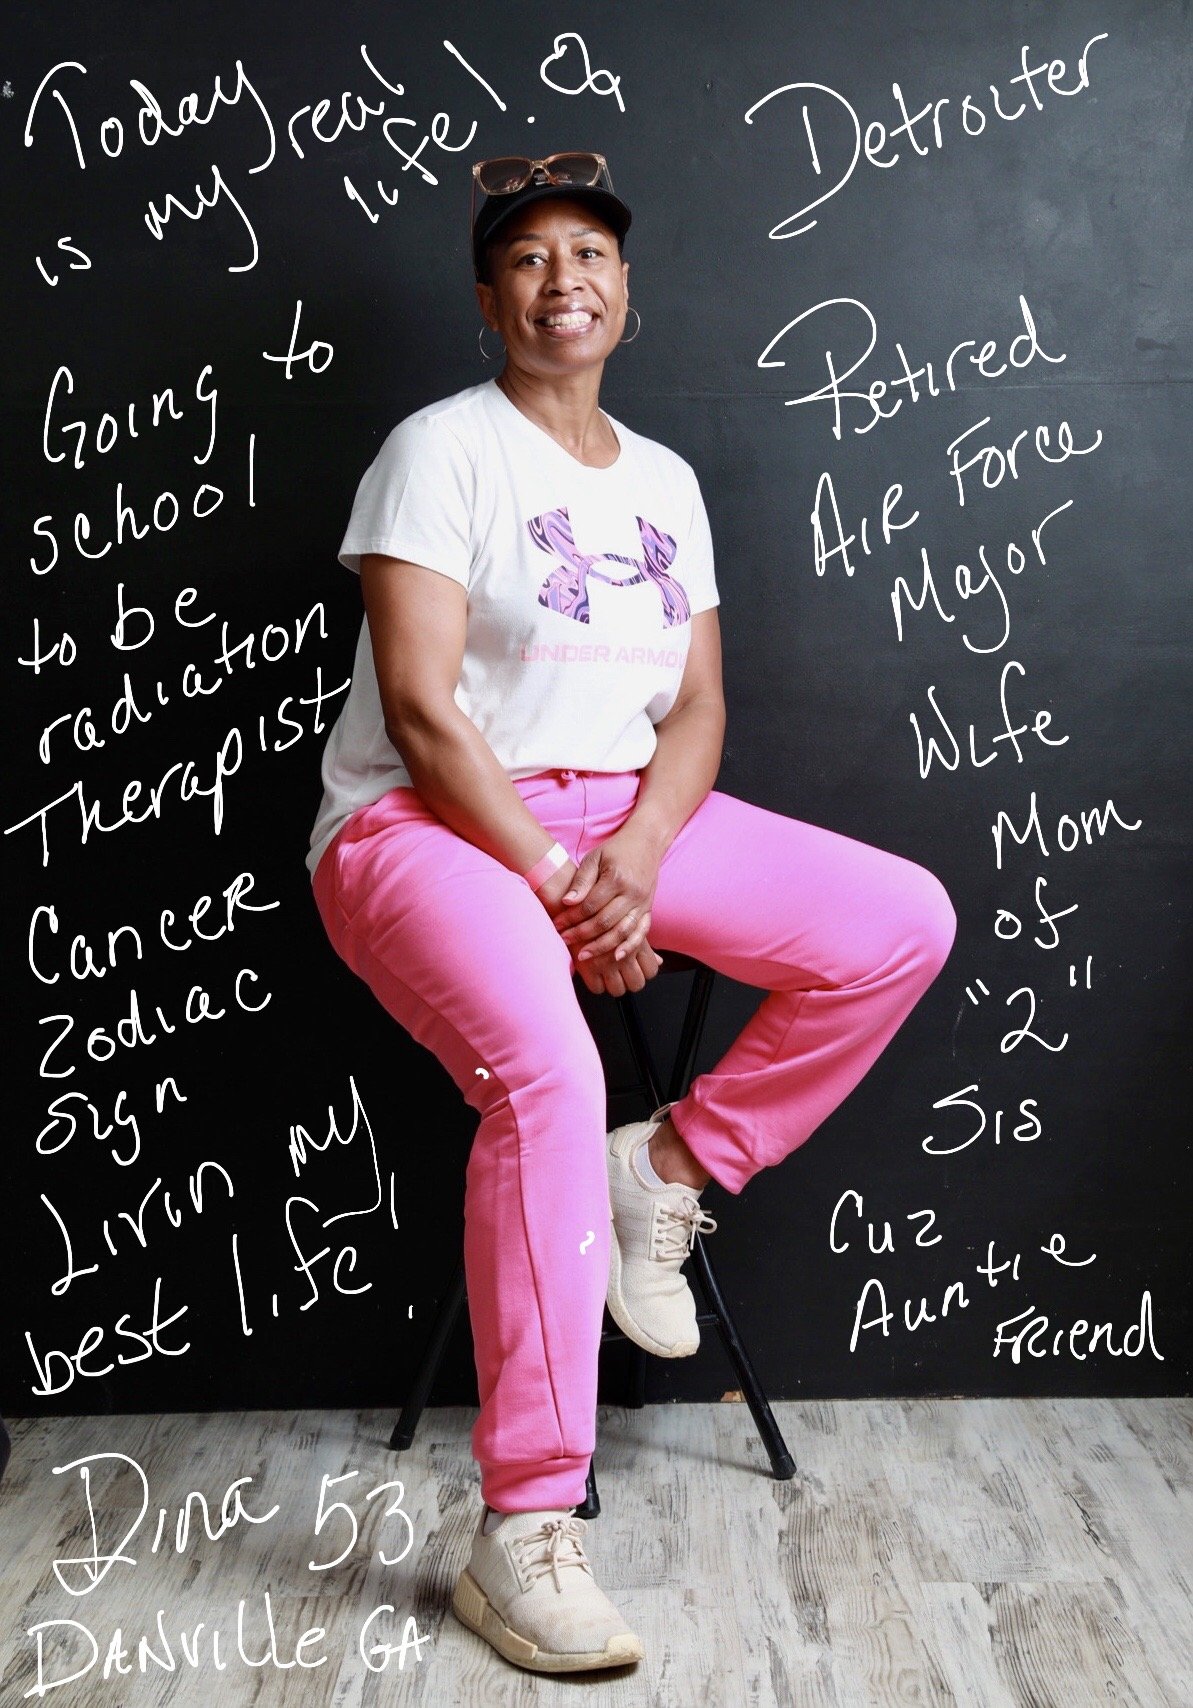 Today
is my real
life!
Going to
school
to be
radiation
Therapist
Cancer
Zodiac
sign
Livin my
best life!
Dina 53
DANVille GA
Detroiter
Retired
AIR Force
Major
Wife
Mom
of
"2"
Sis
Cuz
Auntie
FRiend
UNDER ARMOU